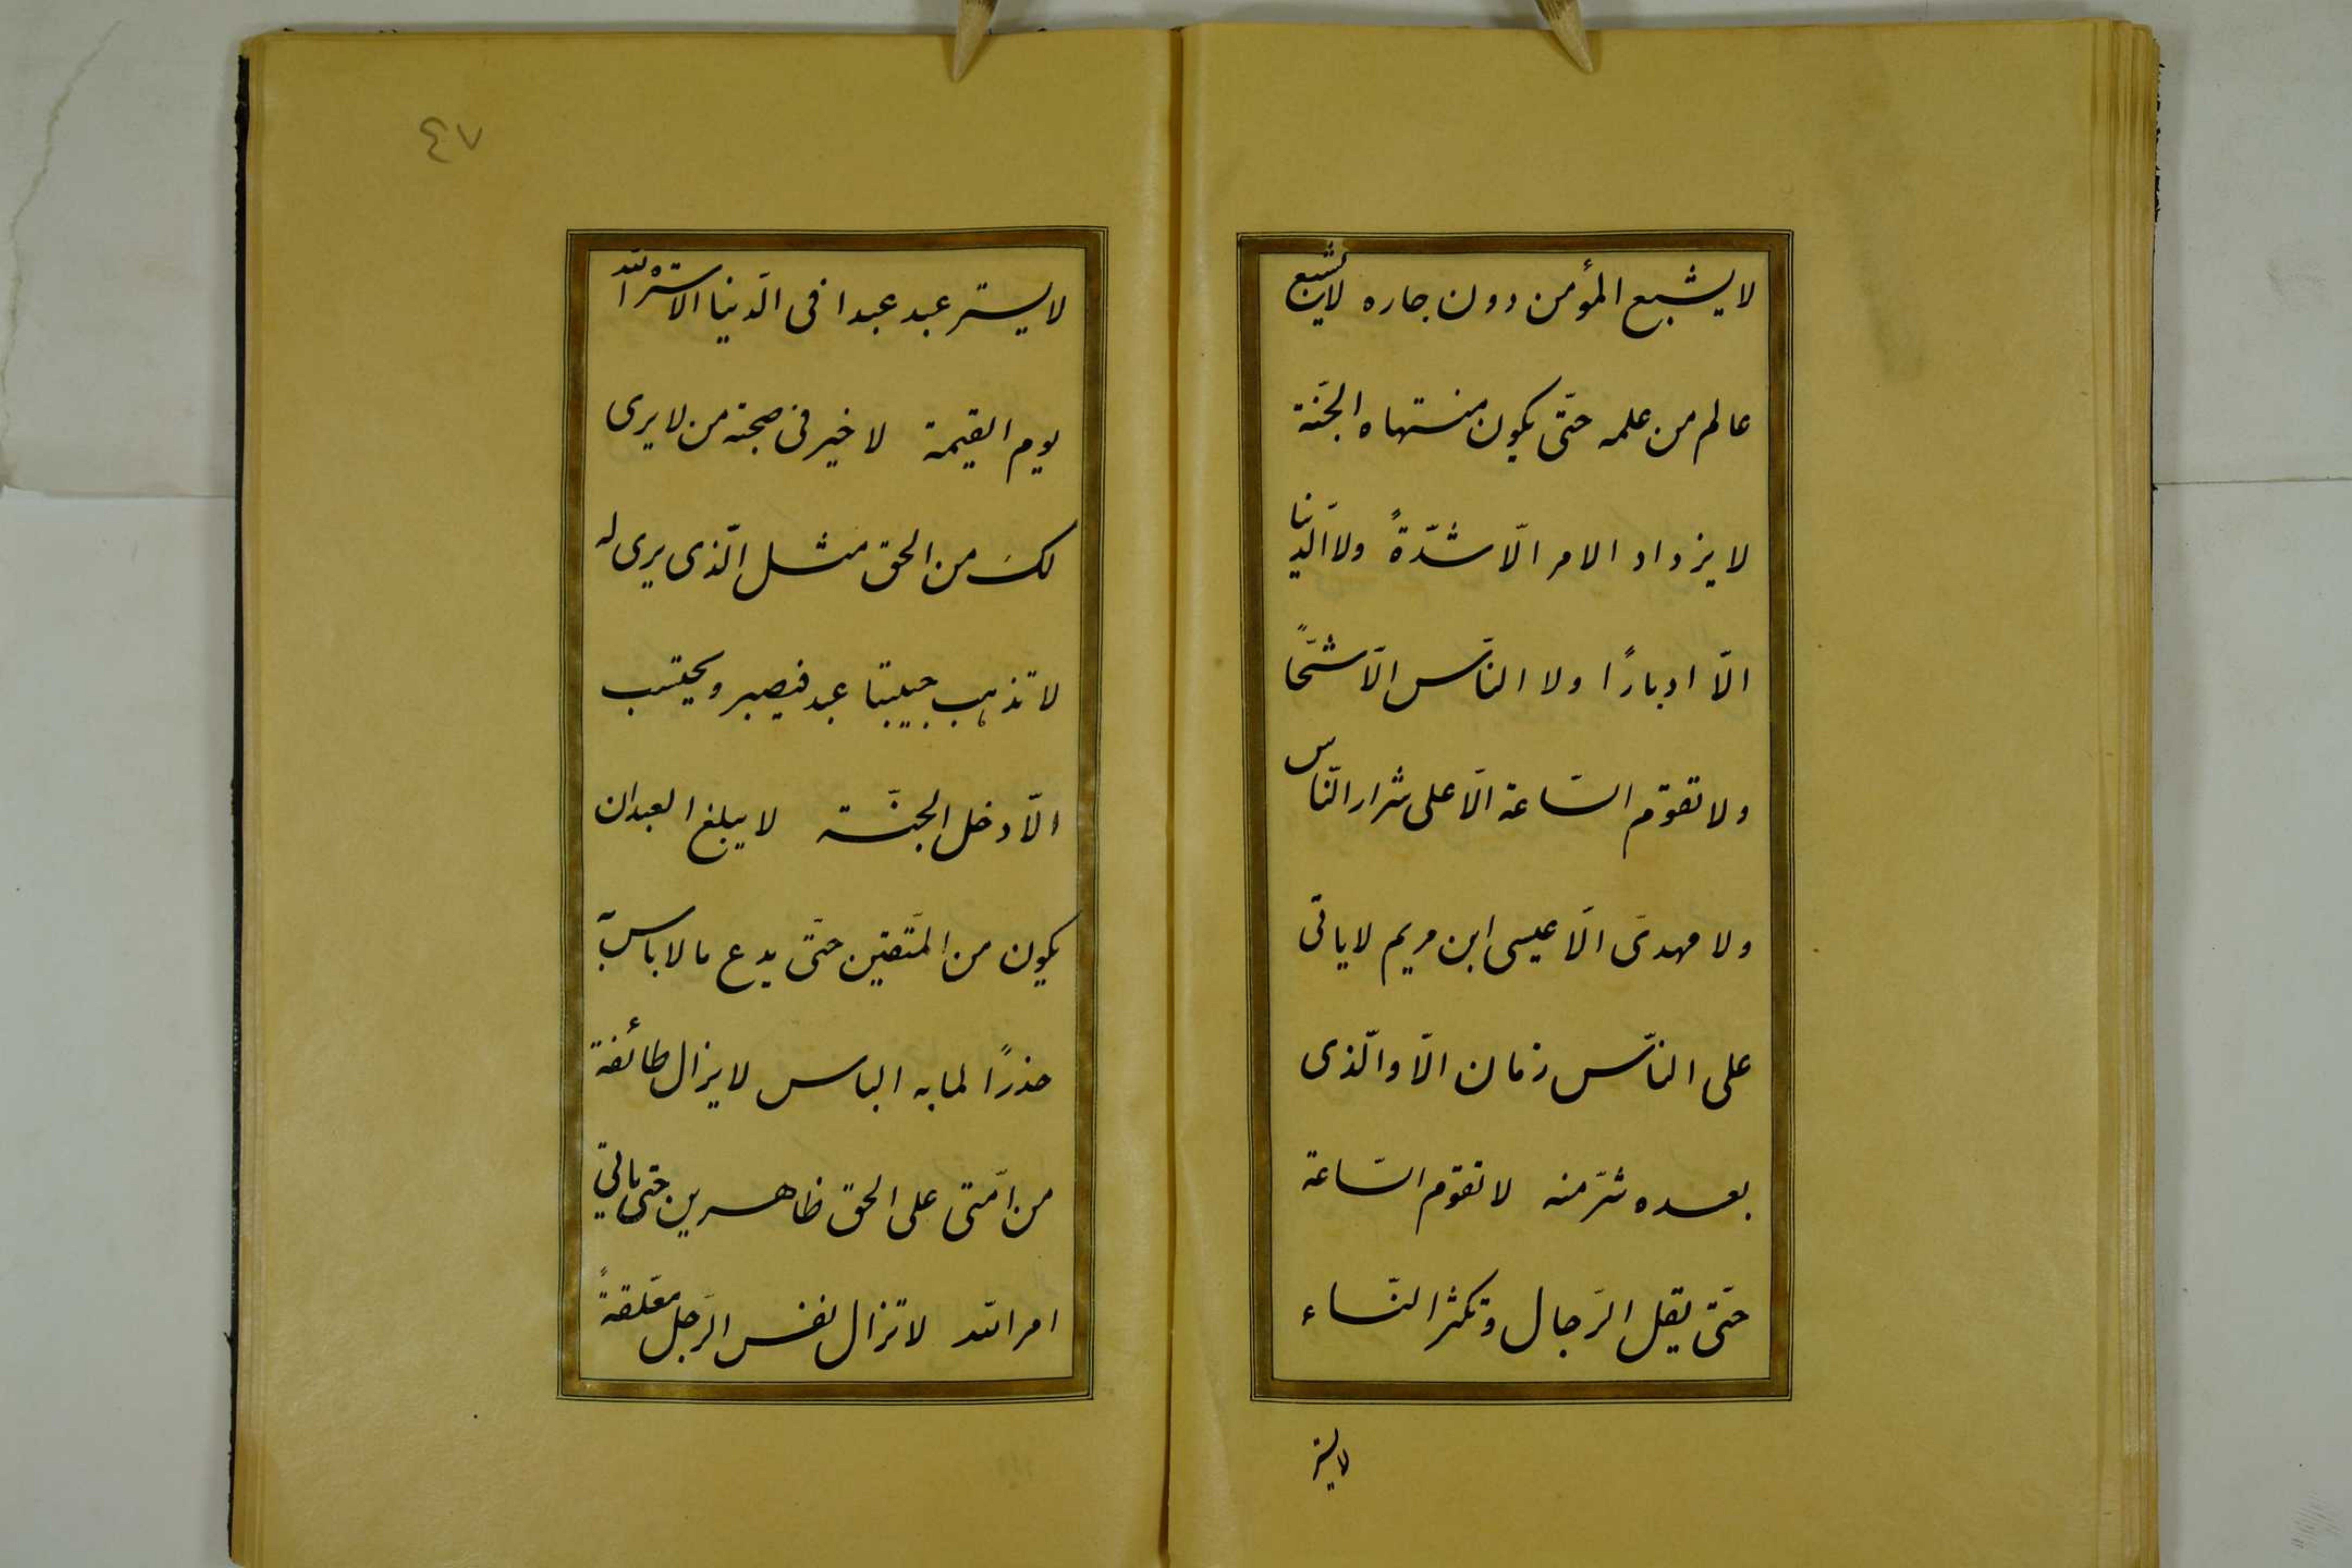 لا يشبع المؤمن دون جاره لا يشبع
عالم من علمه حتّى يكون منتهاه الجنّة
لا يزداد الامر الّا شدّةً ولا الدّنيا
الّا ادبارًا ولا النّاس الّا شحًّا
ولا تقوم السّاعة الّا على شرار النّاس
ولا مهدى الّا عيسى ابن مريم لا ياتى
على النّاس زمان الّا والّذى
بعده شرّ منه لا تقوم السّاعة
حتّى يقل الرّجال وتكثر النّساء
لا يستر
٤٧
لا يستر عبد عبدا فى الدّنيا الّا ستره الله
يوم القيمة لا خير فى صحبة من لا يرى
لك من الحق مثل الّذى يرى له
لا تذهب حبيبتا عبد فيصبر ويحتسب
الّا دخل الجنّة لا يبلغ العبد ان
يكون من المتّقين حتّى يدع ما لا باس به
حذرًا لما به الباس لا يزال طائفة
من امّتى على الحق ظاهرين حتى ياتي
امر الله لا تزال نفس الرّجل معلّقةً